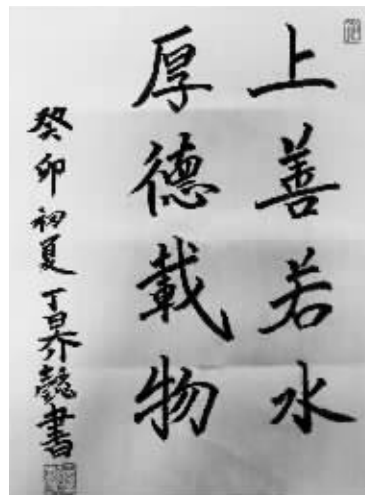 上善若水
厚德載物
癸卯初夏丁昇懿書